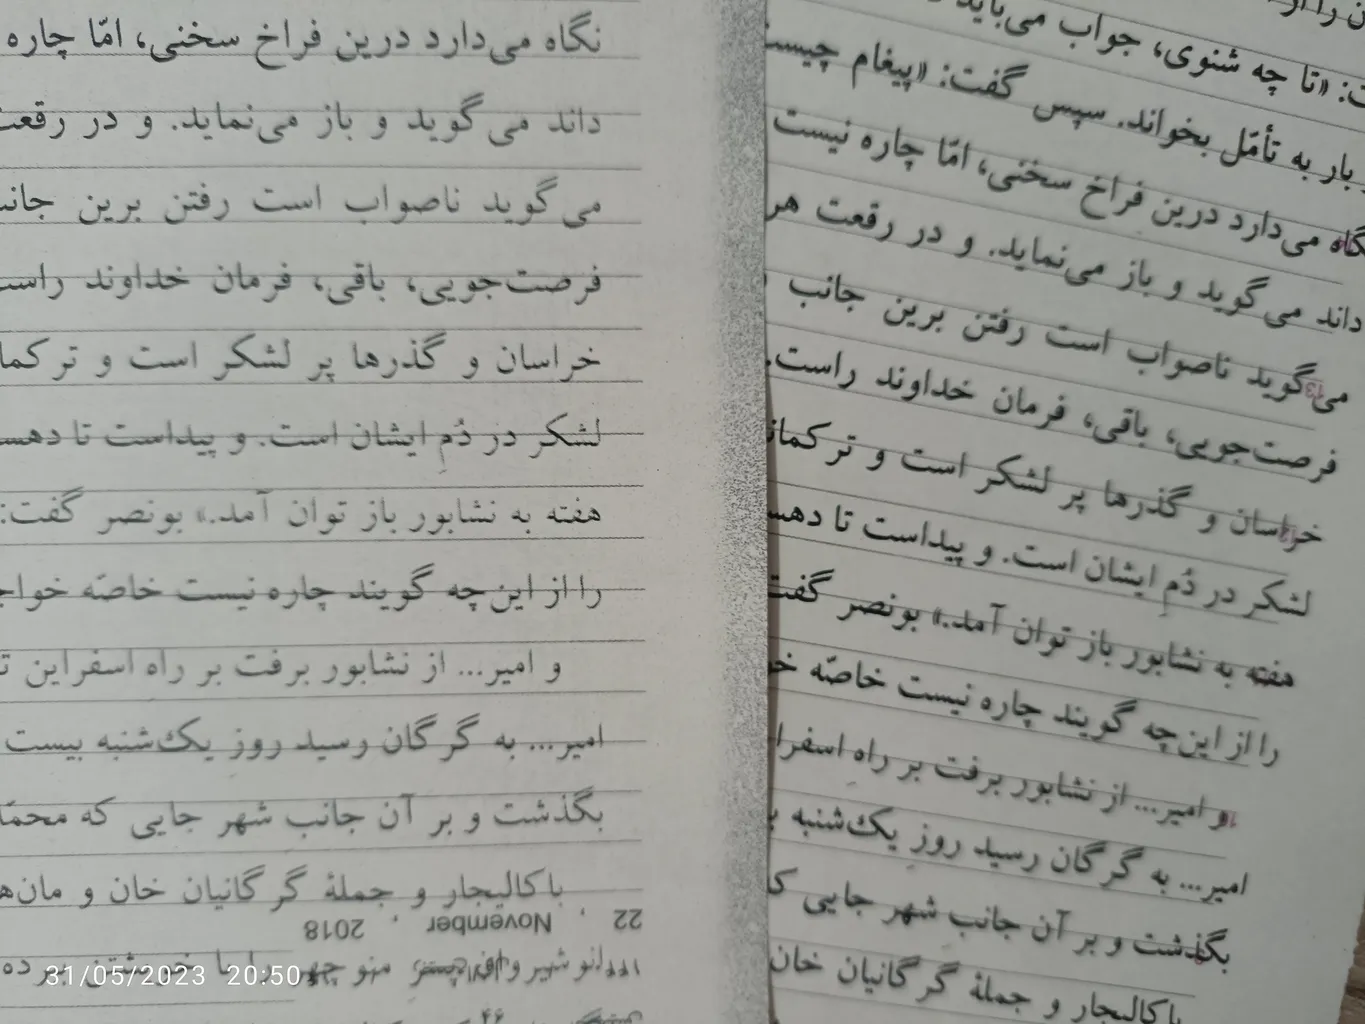 نگاه می‌دارد درین فراخ سخنی، امّا چاره
داند می‌گوید و باز می‌نماید. و در رقعت
می‌گوید ناصواب است رفتن برین
فرصت‌جویی، باقی، فرمان خداوند راست
خراسان و گذرها پر لشکر است و
لشکر در دُمِ ایشان است. و پیداست تا
هفته به نشابور باز توان آمد.» بونصر گفت:
را از این چه گویند چاره نیست خاصّه
و امیر... از نشابور برفت بر راه اسفراین
امیر... به گرگان رسید روز یک‌شنبه بیست
بگذشت و بر آن جانب شهر جایی که
باکالیجار و جملهٔ گرگانیان خان و
22 , November , 2018
31/05/2023 20:50
«تا چه شنوی، جواب می‌باید
بار به تأمّل بخواند. سپس گفت: «پیغام
نگاه می‌دارد درین فراخ سخنی، امّا چاره نیست
داند می‌گوید و باز می‌نماید. و در رقعت
می‌گوید ناصواب است رفتن برین جانب
فرصت‌جویی، باقی، فرمان خداوند راست.
خراسان و گذرها پر لشکر است و
لشکر در دُمِ ایشان است. و پیداست تا
هفته به نشابور باز توان آمد.» بونصر
را از این چه گویند چاره نیست خاصّه
و امیر... از نشابور برفت بر راهِ
امیر... به گرگان رسید روزِ یک‌شنبه
بگذشت و بر آن جانب شهر جایی
باکالیجار و جملهٔ گرگانیان خان